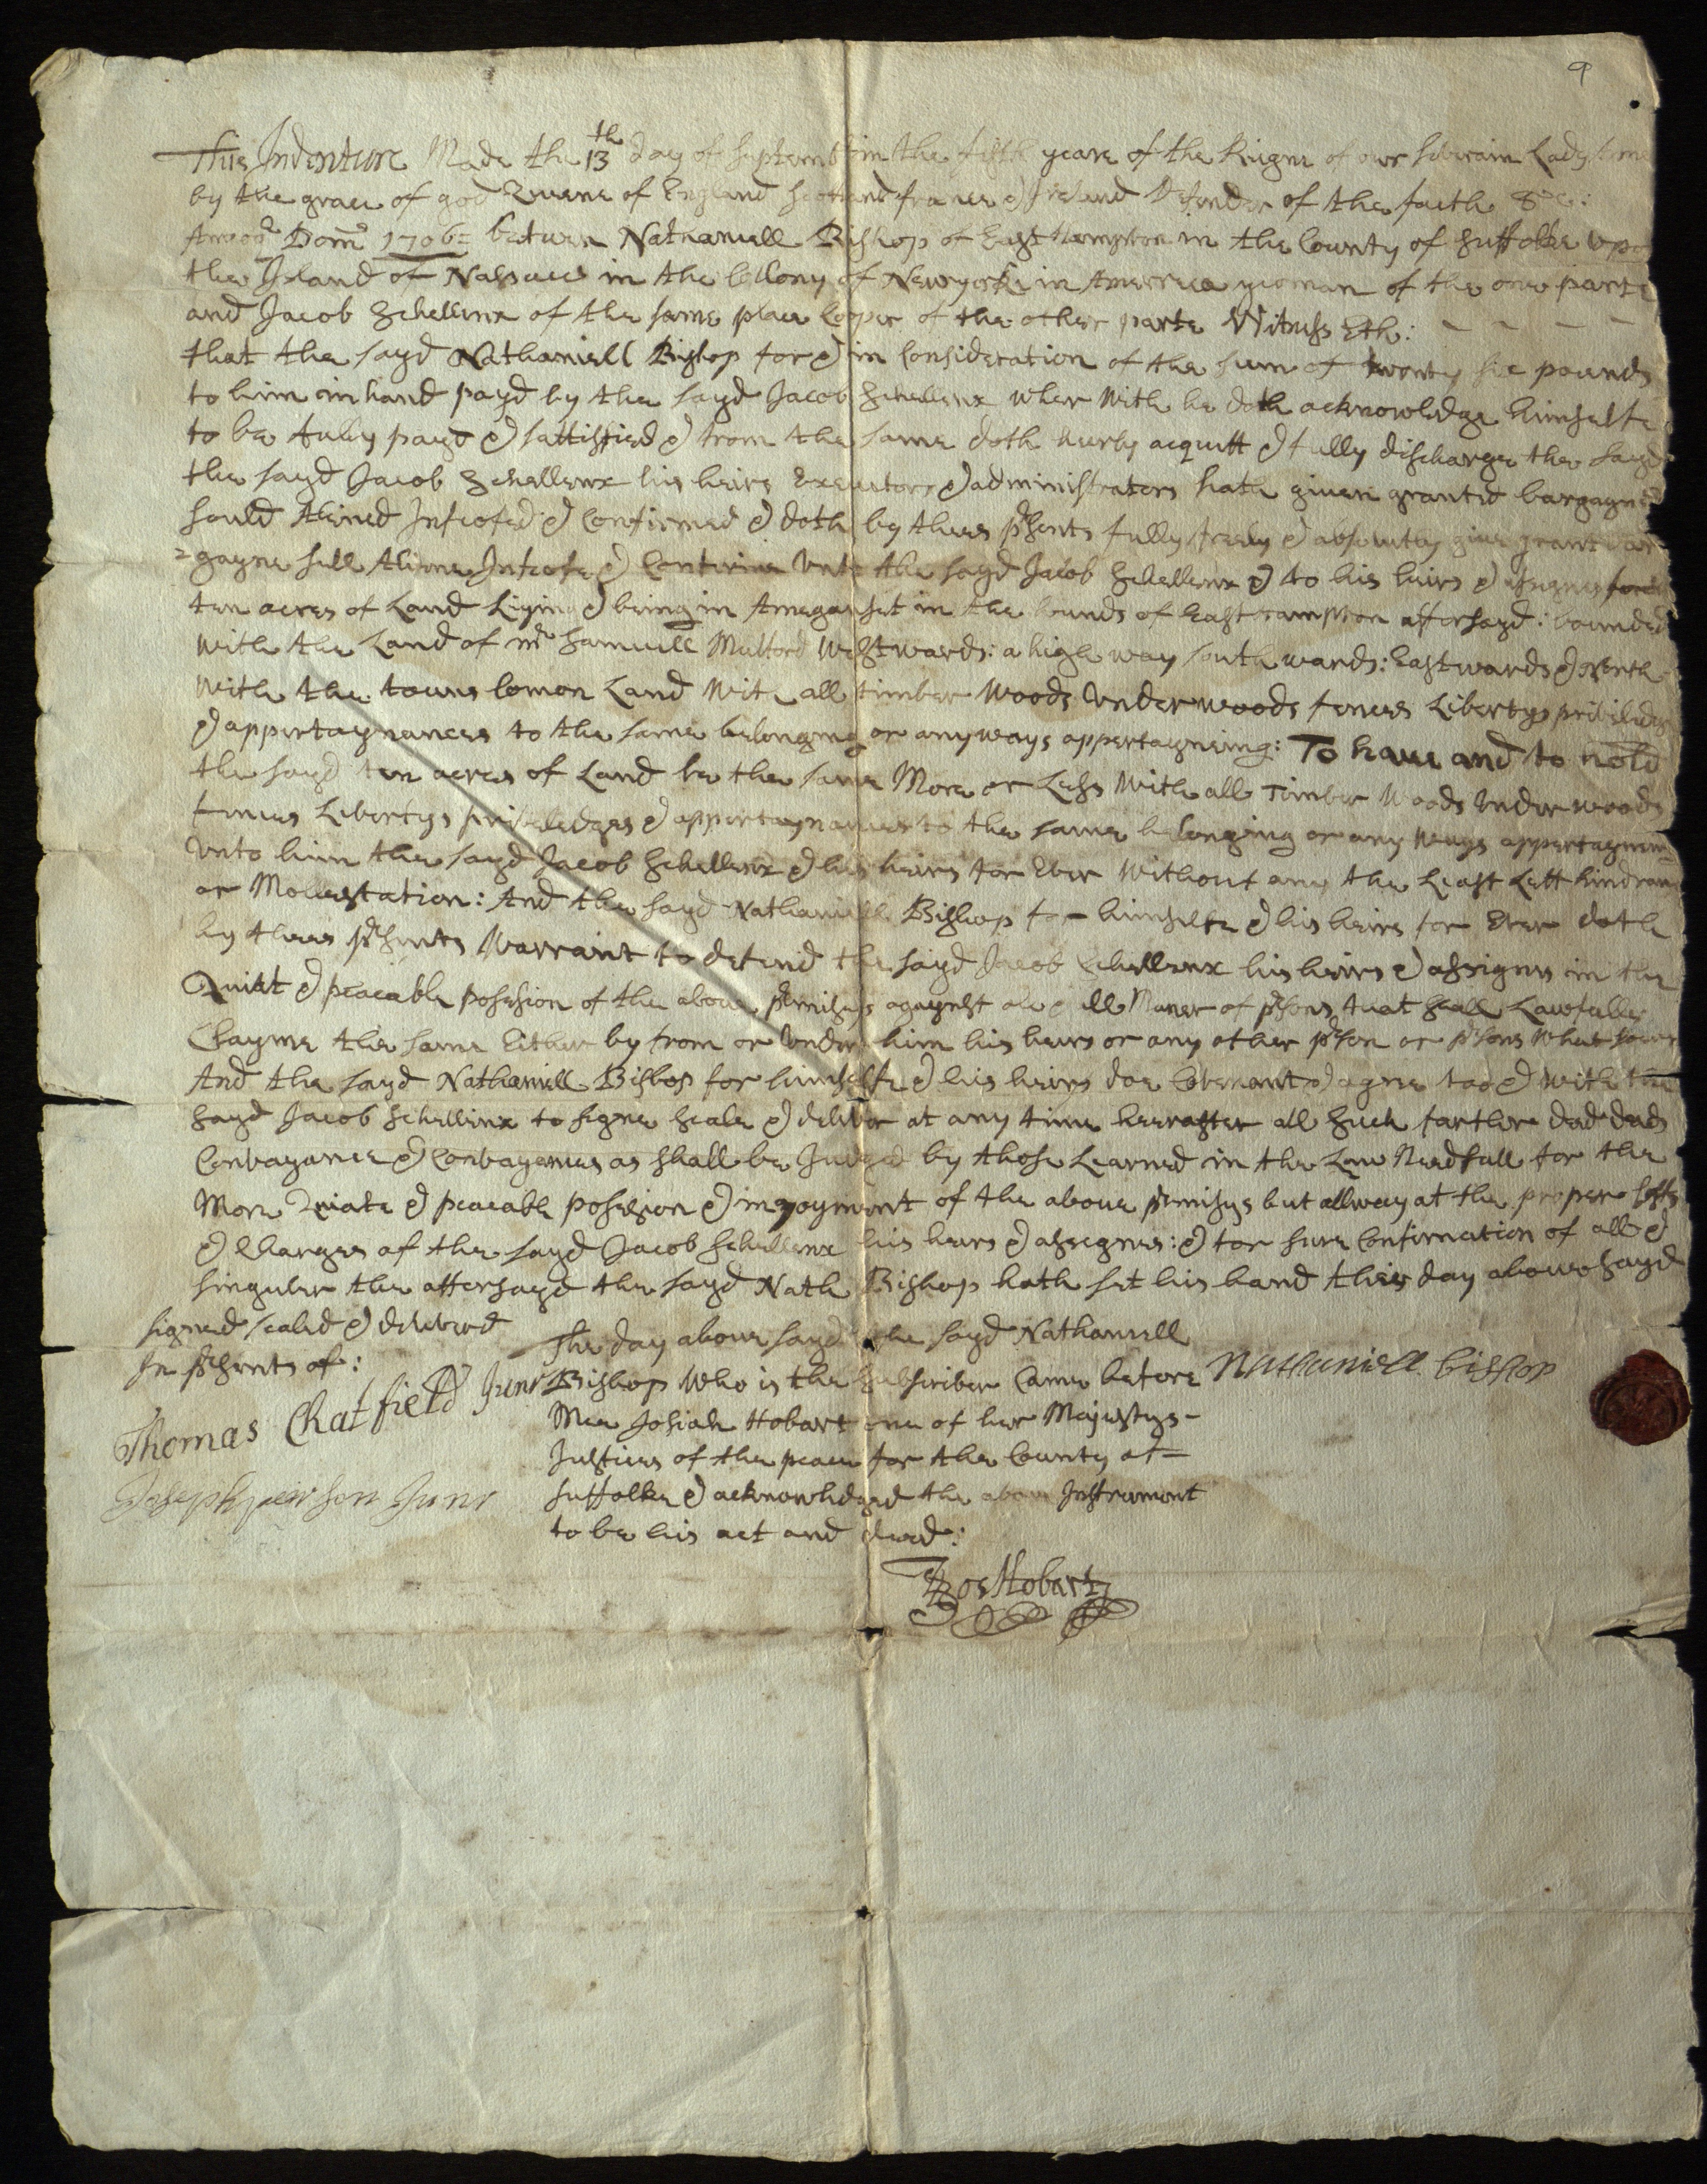 9
This Indenture Made the 13th day of Septemb in the fifth yeare of the Reigne of our Soverain Lady
by the grace of god Queene of England Scotland france & Ireland Defender of the faith &c:
Annoq Dom 1706: betwen Nathaniell Bishop of East Hampton in the County of Suffolke upo
the Island of Nassaw in the Collony of Newyorke in Amerrica yeoman of the one parte
and Jacob Schellinx of the same place Cooper of the other parte Witnesseth: - - - -
that the sayd Nathaniell Bishop for & in Consideration of the sum of twenty six pounds
to him in hand payd by the sayd Jacob Schellinx wher with he doth acknowledge himselfe
to be fully payd & sattisfied & from the same doth heerby acquitt & fully discharge the sayd
the sayd Jacob Schellinx his heirs Executors & administrators hath given granted bargagned
sould Aliened Infeofed & Confirmed & doth by thees psents fully freely & absolutly give grant bar
=gayne sell Aliene Infeofe & Confirme unto the sayd Jacob Schellinx & to his heirs & assignes
ten acres of Land Lying & being in Ameganset in the bounds of East hampton affersayd: bounded
with the Land of mr Samuell Mulford Westwards: a high way southwards: Eastwards & North
with the towns Comon Land with all timber woods underwoods fences Libertys priviledges
& appertaynances to the same belonging or anyways appertayneing: To have and to hold
the sayd ten acres of Land be the same More or Less with all Timber Woods Underwoods
fences Libertys priviledges & appertaynances to the same belonging or any ways appertayneing
unto him the sayd Jacob Schellinx & his heirs for Ever without any the Least Lett hindran
or Mollestation: And the sayd Nathaniell Bishop for himselfe & his heirs for Ever doth
by thees psents Warrant to defend the sayd Jacob Schellinx his heirs & assignes in the
Quiet & peacable posession of the above pmisses agaynst all Maner of psons that shall Lawfully
Clayme the same Either by from or under him his heirs or any other pson or psons whatsoever
And the sayd Nathaniell Bishop for himselfe & his heirs doe Covenant & agree too & with the
sayd Jacob Schellinx to signe seale & deliver at any time heerafter all such farther deed deeds
Convayance & Convayances as shall be Judged by those Learned in the Law Needfull for the
More Quiate & peacable posession & injoyment of the above pmisys but allway at the proper Costs
& Charges of the sayd Jacob Schellinx his heirs & assignes: & for sure Confirmation of all &
singuler the affersayd the sayd Nath Bishop hath set his hand this day above sayd
signed sealed & delivered
In psents of:
Thomas Chatfield Junr
Joseph peirson Junr
The day above sayd the sayd Nathaniell
Bishop who is the subscriber Came before
Mee Josiah Hobart one of her Majestys-
Justices of the peace for the County of=
Suffolke & acknowledged the above Instrument
to be his act and deed:
Jos Hobart
Nathaniell bishop